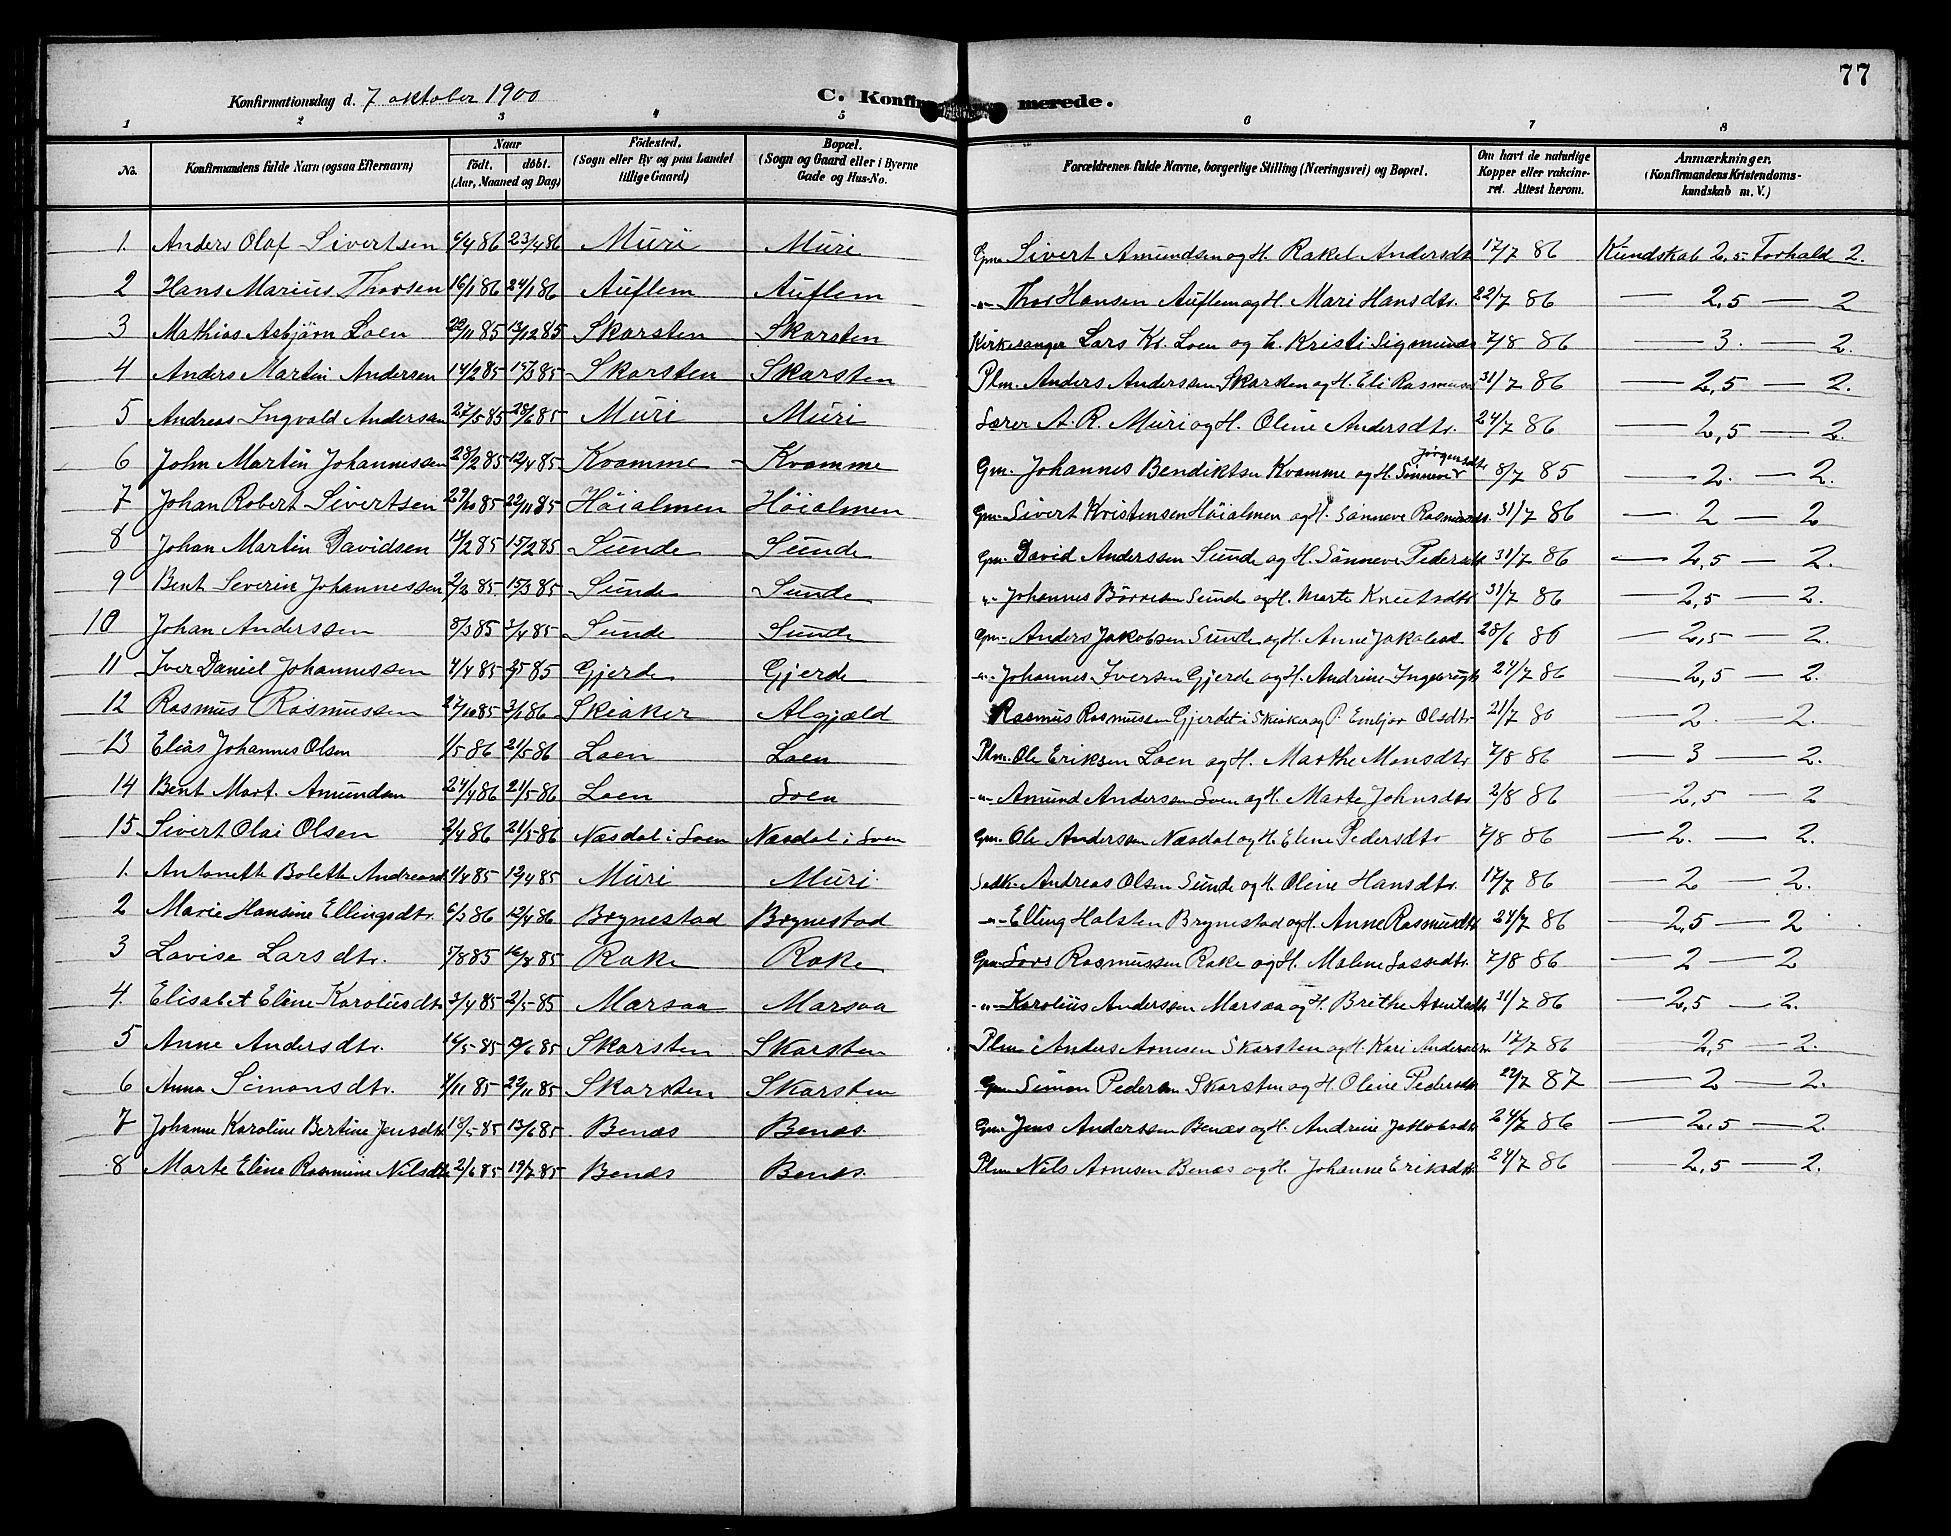 77
Konfirmationsdag d. 7 oktober 1900 C. Konfirmerede.
1 2 3 4 5 6 7 8
No. Konfirmandens fulde Navn (ogsaa Efternavn) Naar født, døbt. (Aar, Maaned og Dag) Fødested. (Sogn eller By og paa Landet tillige Gaard) Bopæl. (Sogn og Gaard eller i Byerne Gade og Hus-No. Forældrenes fulde Navne, borgerlige Stilling (Næringsvei) og Bopæl. Om havt de naturlige Kopper eller vakcineret. Attest herom. Anmærkninger. (Konfirmandens Kristendomskundskab m. V.)
1. Anders Olaf Sivertsen 6/4 86 23/4 86 Muri Muri Gm. Sivert Amundsen og H. Rakel Andersdt 17/7 86 Kundskab 2,5 Forhald 2.
2 Hans Marius Thorsen 16/1 86 24/1 86 Auflem Auflem -"- Thor Hansen Auflem og H. Mari Hansdtr. 22/7 86 — 2,5 — 2
3 Mathias Asbjørn Loen 22/11 85 13/12 85 Skarsten Skarsten Kirkesanger Lars Kr. Loen og H. Kristi Sigmunds 7/8 86 — 3. — 2.
4 Anders Martin Andersen 14/2 85 15/3 85 Skarsten Skarsten Plm. Anders Anderssen Skarsten og H. Eli Rasmusd 31/7 86 — 2,5 — 2.
5 Andreas Ingvald Andersen 27/5 85 28/6 85 Muri Muri Lærer A. R. Muri og H. Oline Andersdtr. 24/7 86 — 2,5 — 2.
6 John Martin Johannessen 23/2 85 12/4 85 Kvamme Kvamme Gm. Johannes Bendiktsen Kvamme og H. Sønneve Jørgensdtr 8/7 85 — 2. — 2.
7 Johan Robert Sivertsen 29/10 85 22/11 85 Høialmen Høialmen Gm. Sivert Kristensen Høialmen og H. Sønneve Rasmusdtr. 31/7 86 — 2 — 2
8 Johan Martin Davidsen 15/2 85 Sunde Sunde Gm. David Anderssen Sunde og H. Sønneve Pedersdt 31/7 86 — 2,5 — 2.
9 Bent Severin Johannessen 2/3 85 15/3 85 Sunde Sunde -"- Johannes Børresen Sunde og H. Marte Knutsdtr 31/7 86 — 2,5 — 2.
10 Johan Anderssen 8/3 85 Sunde Sunde Gm. Anders Jakobsen Sunde og H. Anne Jakobsd 28/6 86 — 2,5 — 2.
11 Iver Daniel Johannessen 4/4 85 Gjerde Gjerde -"- Johannes Iversen Gjerde og H. Andrine 24/7 86 — 2,5 — 2.
12 Rasmus Rasmussen 27/10 85 3/1 86 Skiaker Algjæld Rasmus Rasmussen Gjerdet i Skiaker og P. Olsdtr 21/7 86 — 2. — 2.
13 Elias Johannes Olsen 1/5 86 21/5 86 Loen Loen Plm. Ole Eriksen Loen og H. Marthe Monsdtr. 7/8 86 — 3 — 2.
14 Bent Mart. Amundsen 24/4 86 21/5 86 Loen Loen -"- Amund Andersen Loen og H. Marte Johnsdtr 2/8 86 — 2,5 — 2
15 Sivert Olai Olsen 2/4 86 21/5 86 Næsdal i Loen Næsdal i Loen Gm. Ole Anderssen Næsdal og H. Elene Pedersdtr 7/8 86 — 2. — 2.
1. Antonette Bolette Andreasd 4/4 85 Muri Muri Andreas Olsen Sunde og H. Oline Hansdtr. 17/7 86 — 2 — 2.
2 Marie Hansine Ellingsdtr. 6/3 86 12/4 86 Brynestad Brynestad -"- Elling Halsten Brynestad og H. Anne Rasmusdtr 24/7 86 — 2,5 — 2
3 Lovise Larsdtr. 5/8 85 16/8 85 Rake Rake Gm. Lars Rasmussen Rake og H. Malene Lassedtr. 7/8 86 — 2 — 2
4. Elisabet Eline Karolusdtr 3/4 85 2/5 85 Marsaa Marsaa -"- Karolius Anderssen Marsaa og H. Brithe 31/7 86 — 2,5 — 2.
5 Anne Andersdtr. Skarsten Skarsten Plm. Anders Arnesen Skarsten og H. Kari Andersdtr 17/7 86 2,5 — 2.
6 Anna Simonsdtr. 4/11 85 22/11 85 Skarsten Skarsten Gm Simon Pedersen Skarsten og H. Oline Pedersdtr 22/7 87 — 2 — 2.
7 Johanne Karoline Bertine Jensdtr 18/5 85 13/6 85 Benæs Benæs Gm. Jens Anderssen Benæs og H. Andrine Jakobsdtr 24/7 86 — 2,5 — 2.
8 Marte Eline Rasmine Nilsdtr 2/6 85 19/7 85 Benæs Benæs Plm Nils Arnesen Benæs og H. Johanne Eriksdtr 24/7 86 — 2,5 — 2.